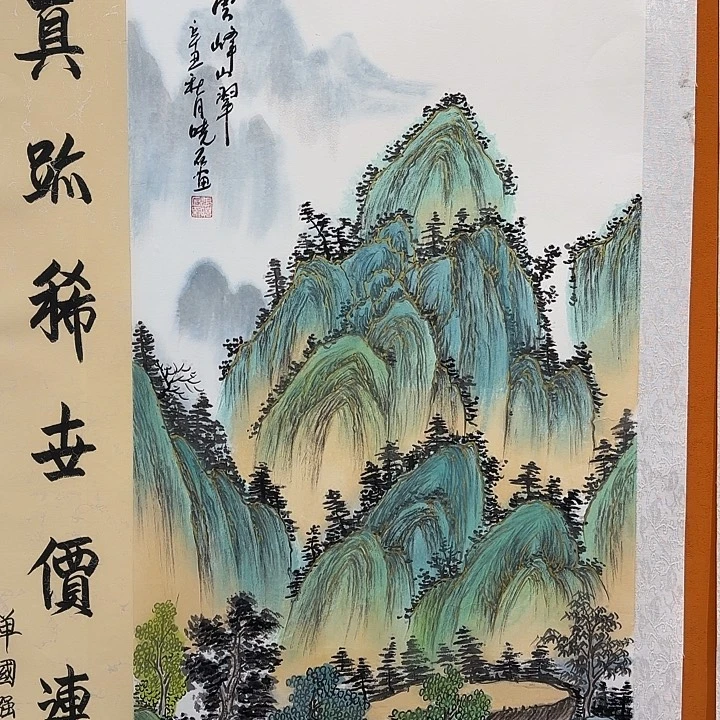 雲峰山翠
辛丑秋月晓石画
真跡稀世價連
單國强